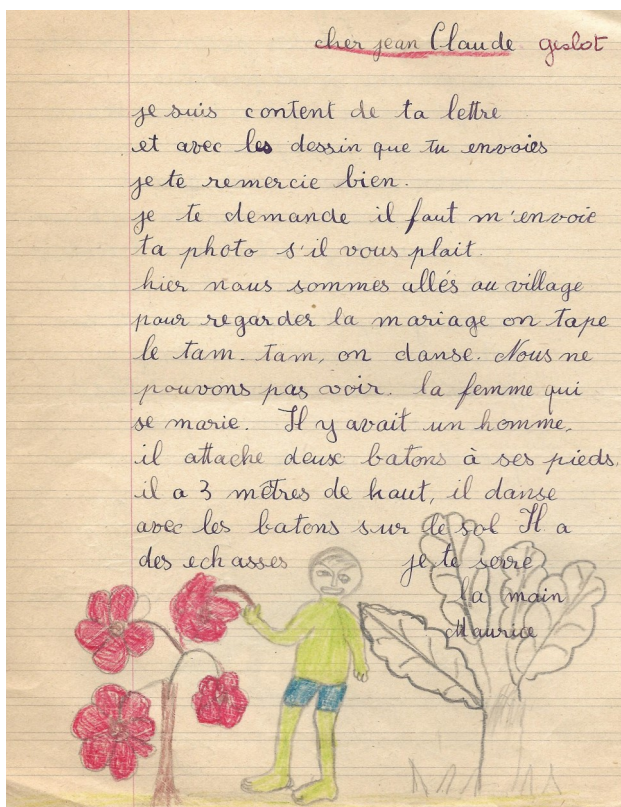 cher jean Claude geslot
je suis content de ta lettre
et avec les dessin que tu envoies
je te remercie bien.
je te demande il faut m'envoie
ta photo s'il vous plait.
hier nous sommes allés au village
pour regarder la mariage on tape
le tam-tam, on danse. Nous ne
pouvons pas voir. la femme qui
se marie. Il y avait un homme,
il attache deux batons à ses pieds.
il a 3 mètres de haut, il danse
avec les batons sur de sol Il a
des echasses je te serre
la main
Maurice